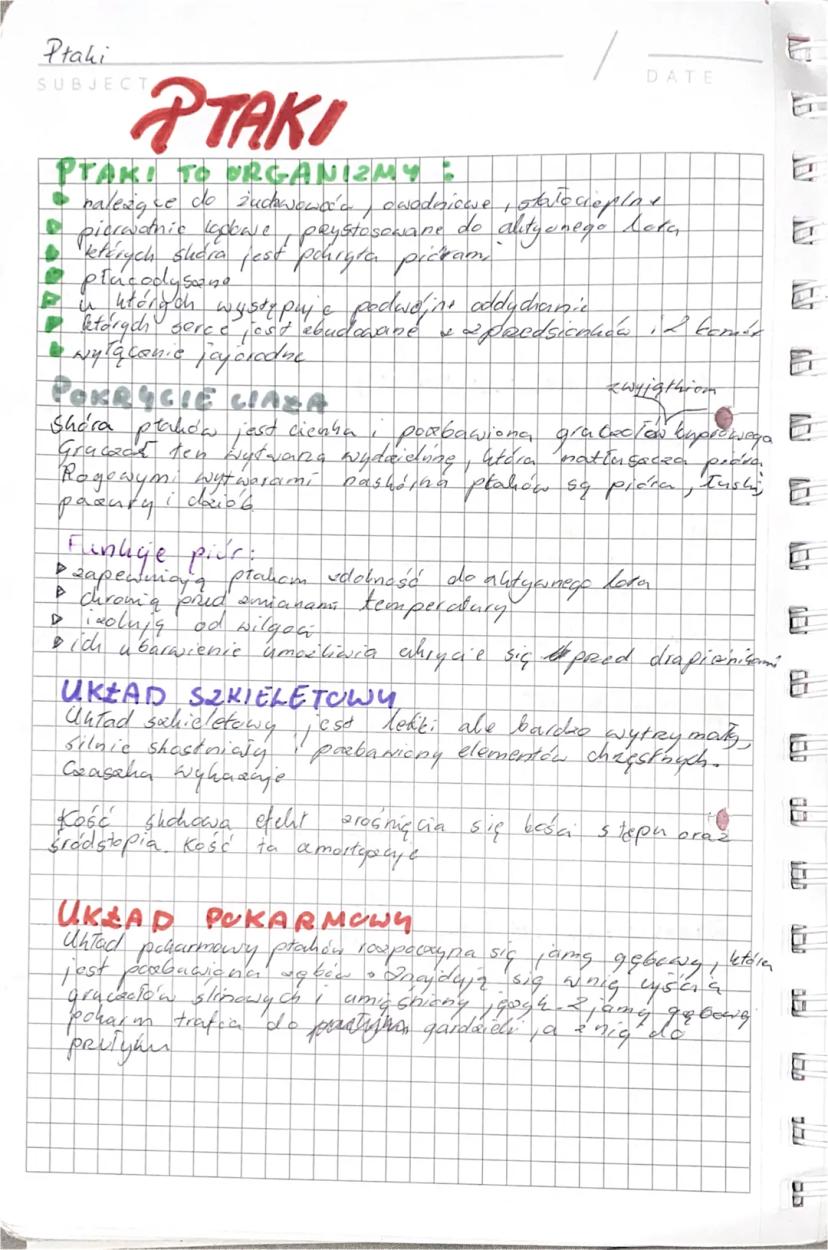 Ptaki
SUBJECT
DATE
PTAKI
PTAKI TO ORGANIZMY :
należące do żuchwowców, owodniowe, stałocieplne
pierwotnie lądowe, przystosowane do aktywnego lotu
których skóra jest pokryta piórami
płucodyszne
u których występuje podwójne oddychanie
których serce jest zbudowane z 2 przedsionków i 2 komór
wyłącznie jajorodne
POKRYCIE CIAŁA
z wyjątkiem
Skóra ptaków jest cienka i pozbawiona gruczołów kuprowego
Gruczoł ten wytwarza wydzielinę, która natłuszcza pióra.
Rogowymi wytworami naskórka ptaków są pióra, łuski,
pazury i dziób.
Funkcje piór:
zapewniają ptakom zdolność do aktywnego lotu
chronią przed zmianami temperatury
izolują od wilgoci
ich ubarwienie umożliwia ukrycie się przed drapieżnikami
UKŁAD SZKIELETOWY
Układ szkieletowy jest lekki ale bardzo wytrzymały,
silnie skostniały i pozbawiony elementów chrzęstnych.
Czaszka wykazuje
Kość skokowa efekt zrośnięcia się kości stępu oraz
śródstopia. Kość ta amortyzuje
UKŁAD POKARMOWY
Układ pokarmowy ptaków rozpoczyna się jamą gębową, która
jest pozbawiona zębów. Znajdują się w nią ujścia
gruczołów ślinowych i umięśniony język. Z jamy gębowej
pokarm trafia do gardzieli, a z nią do
przełyku